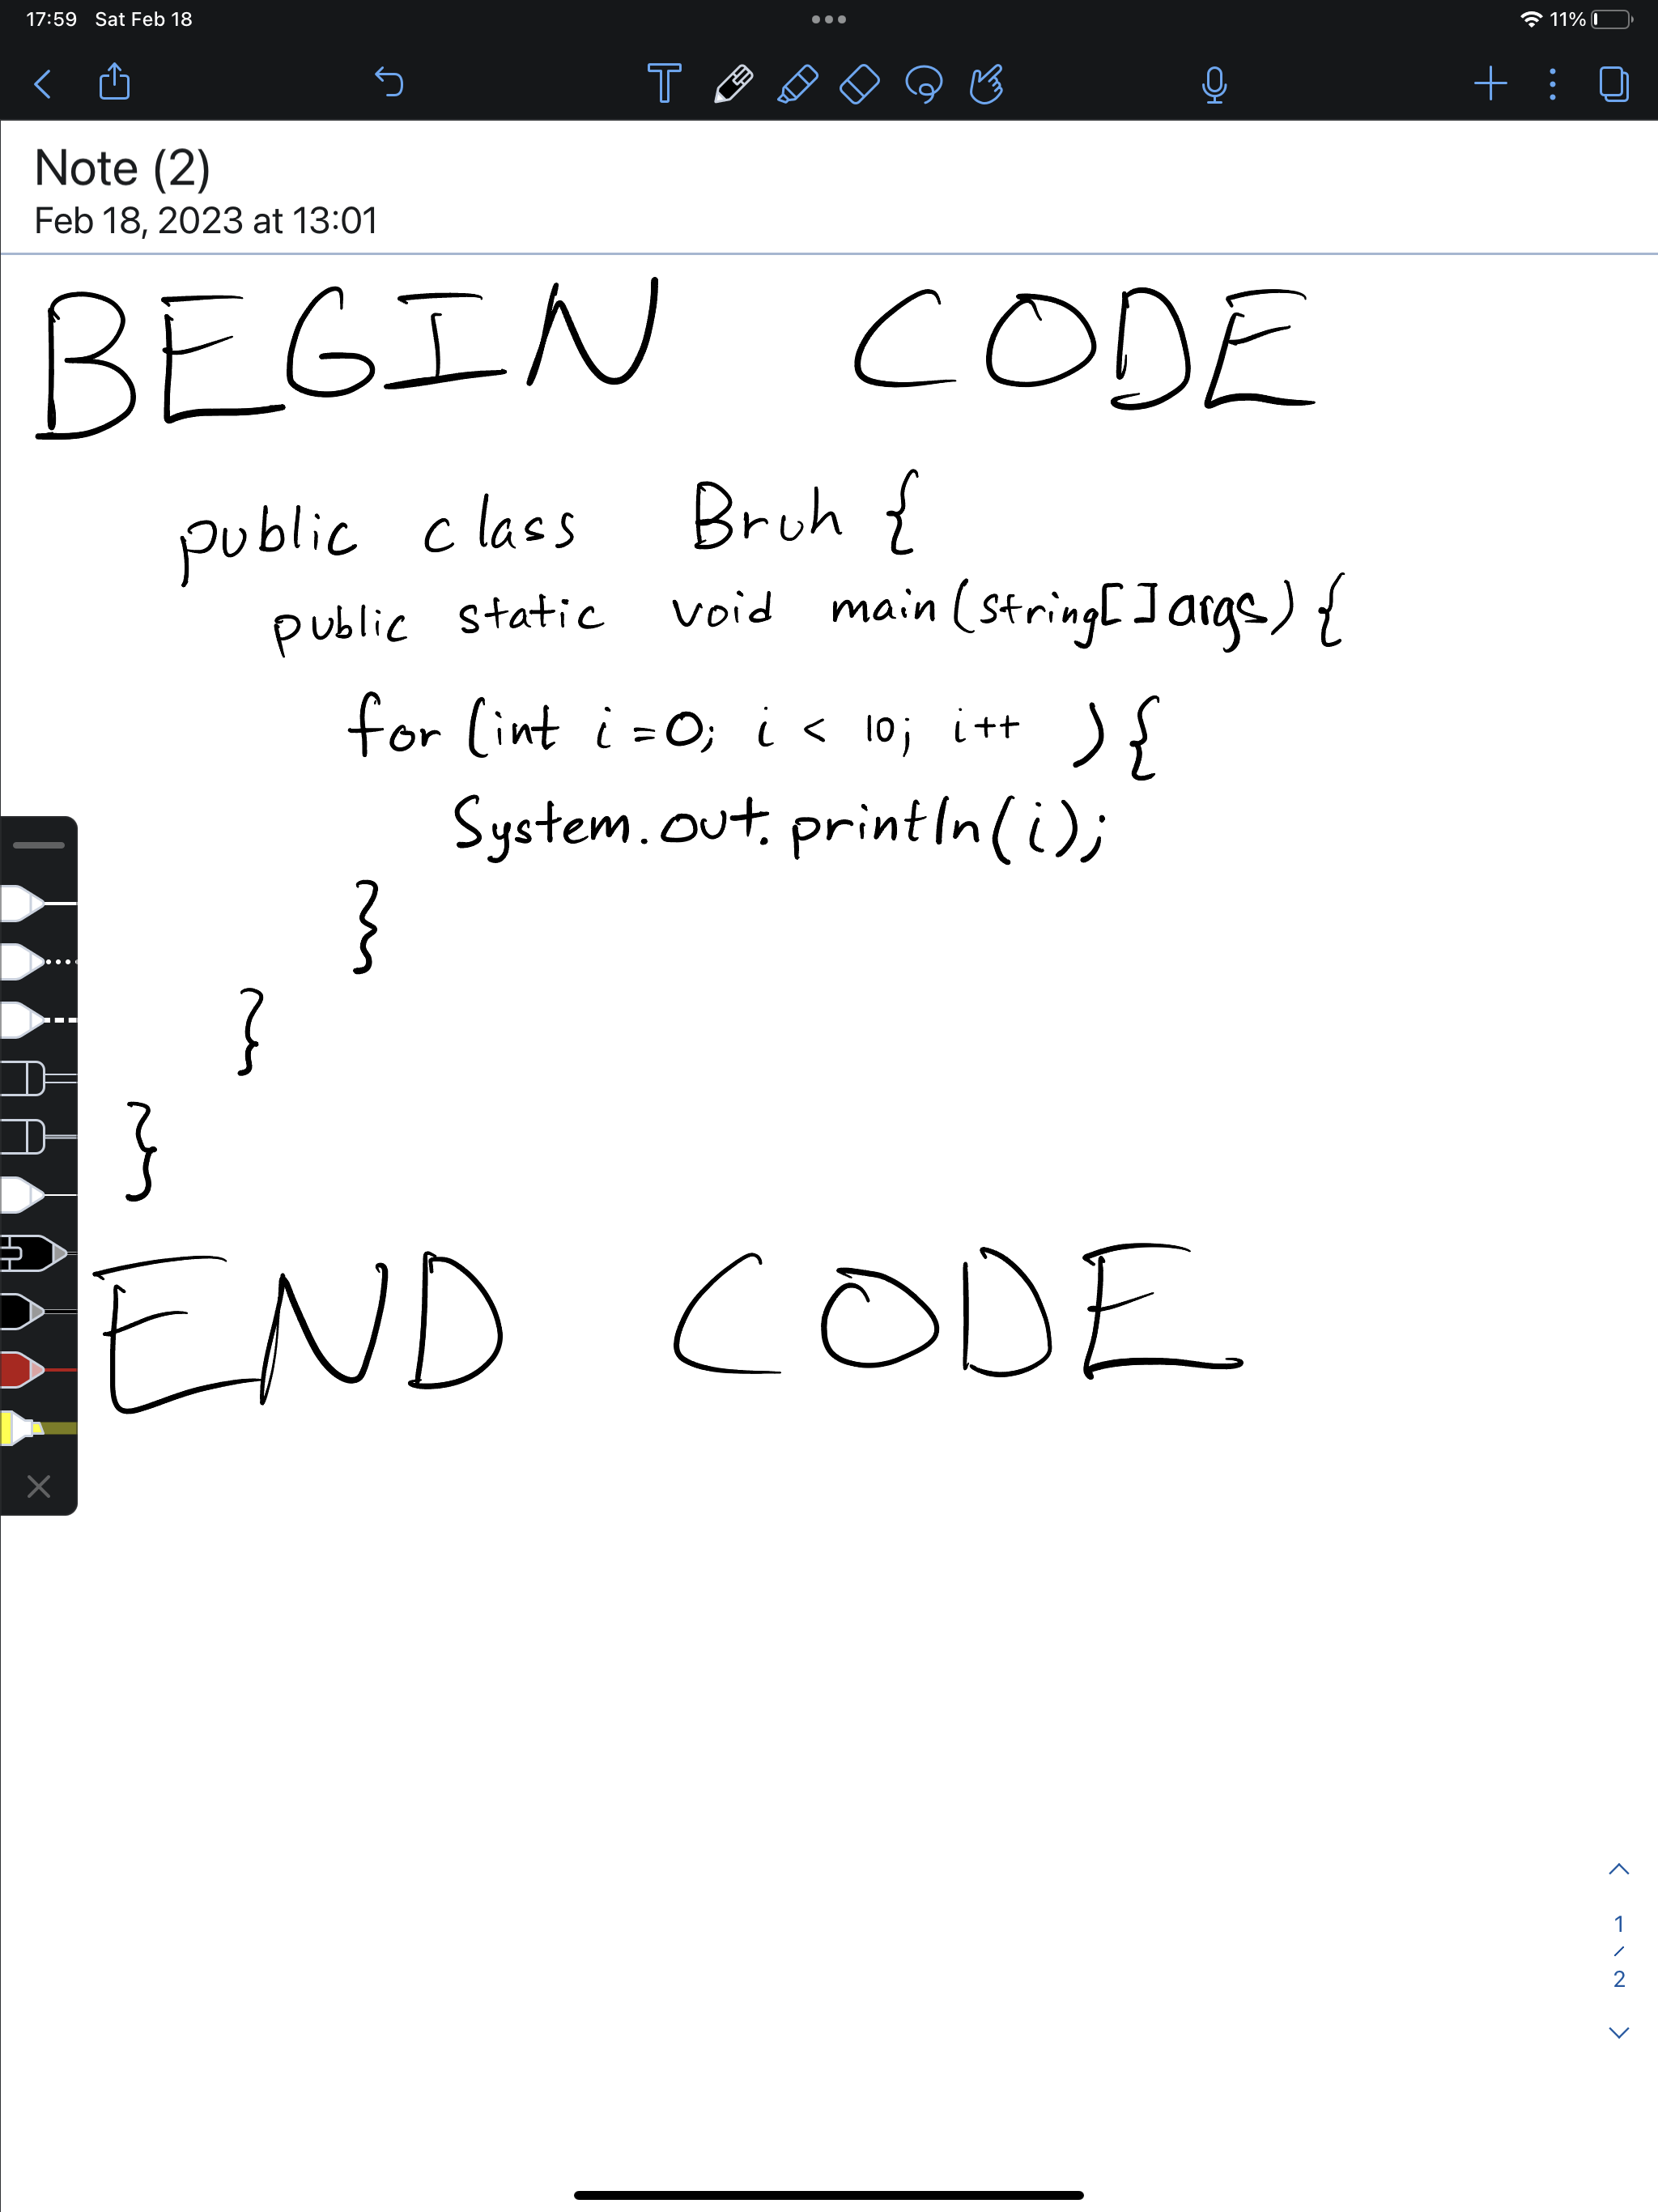 17:59 Sat Feb 18 11%
Note (2)
Feb 18, 2023 at 13:01
BEGIN CODE
public class Bruh {
public static void main(string[] args) {
for (int i=0; i < 10; i++ ) {
System.out.println(i);
}
}
}
END CODE
1
/
2